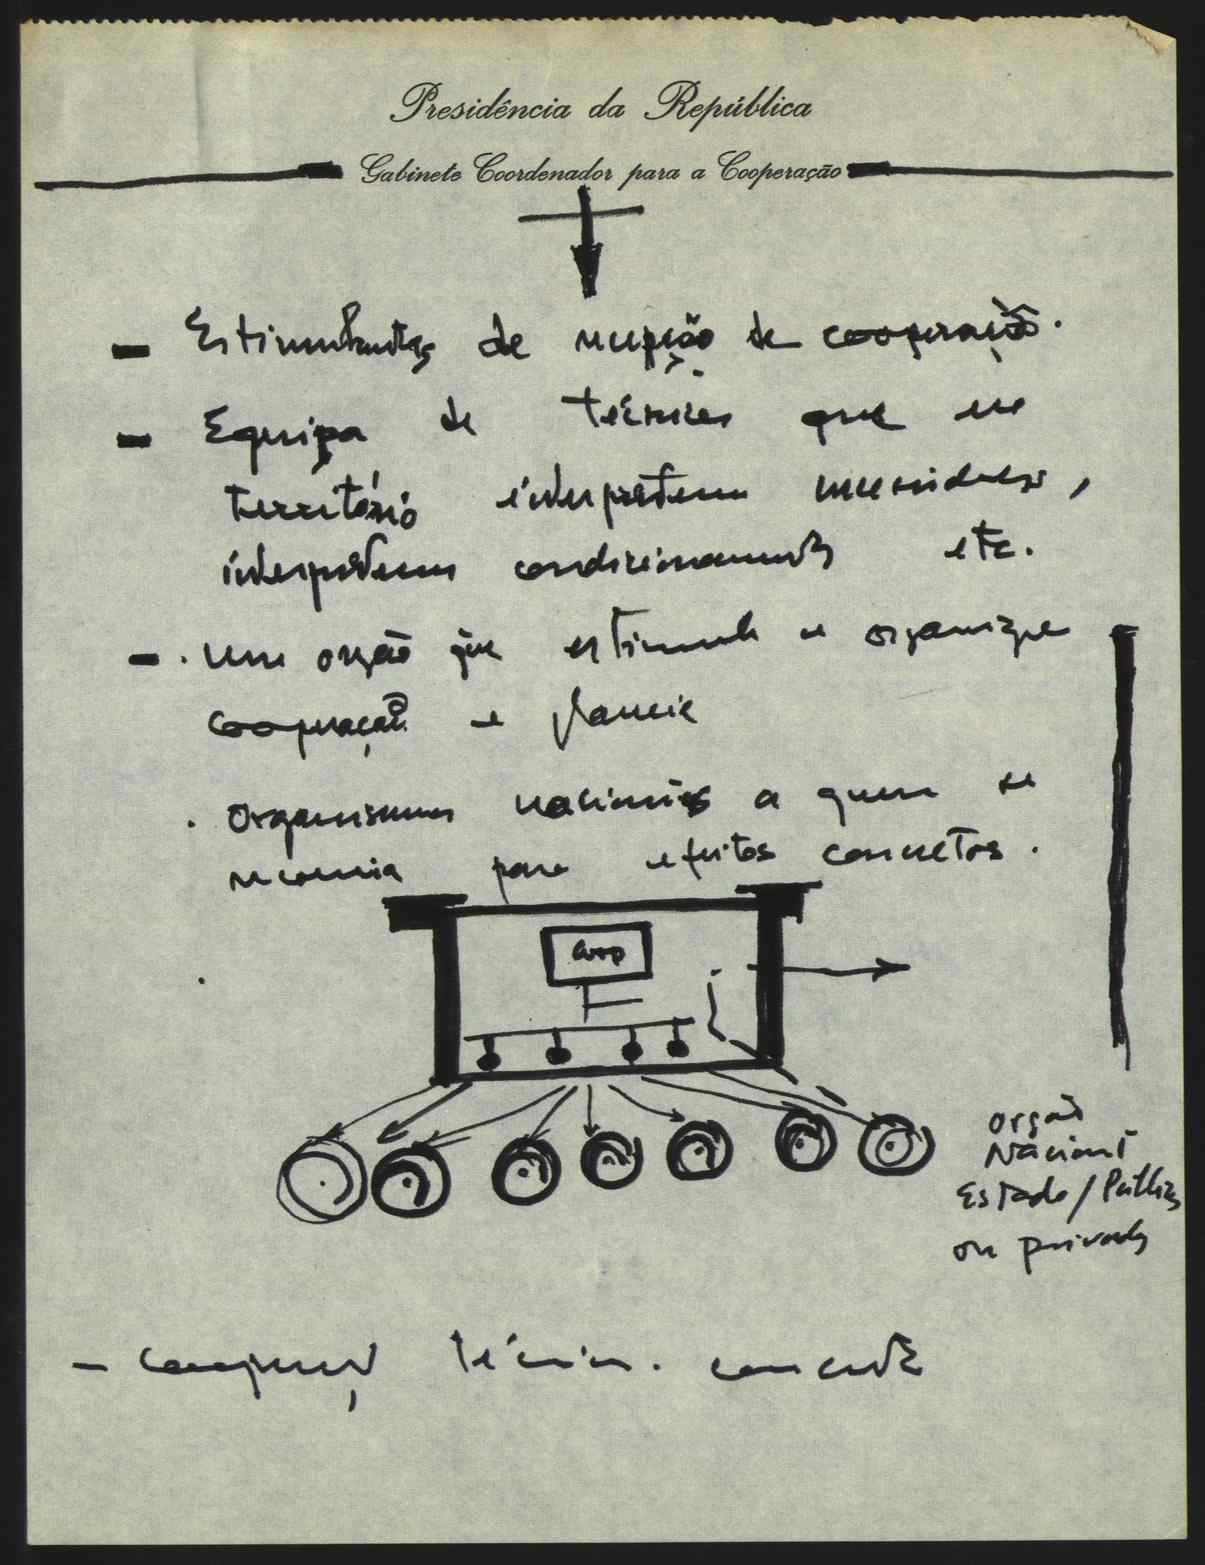 Presidência da República
Gabinete Coordenador para a Cooperação
- de recepção de cooperação.
- Equipa de técnicos que no
território interpretem necessidades,
interpretem condicionamentos etc.
- . um orgão que estimule e organize
cooperação e planeie
. Organismos nacionais a quem se
recorria para efeitos concretos.
Coop
orgão
Nacional
Estado / Públicos
ou privados
- técnica. concreta